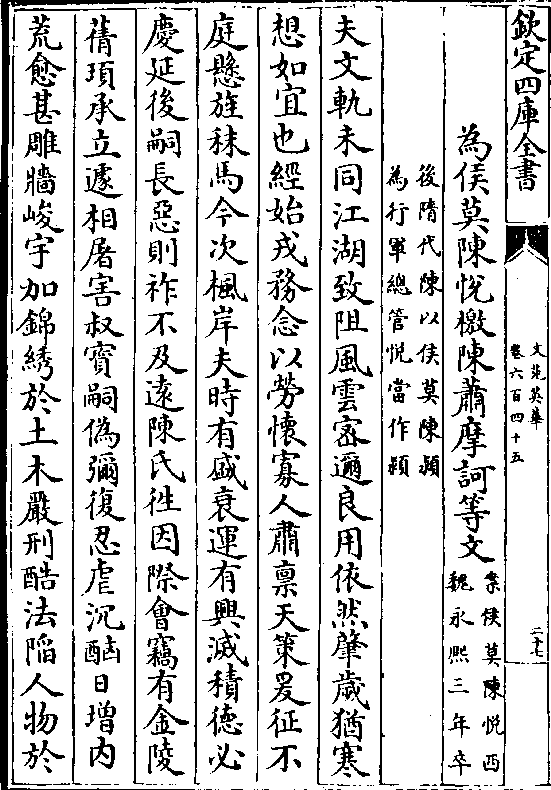 欽定四庫全書
文苑英華
卷六百四十五
二十七
為侯莫陳悅檄陳蕭摩訶等文
案侯莫陳悅西
魏永熙三年卒
後隋代陳以侯莫陳潁
為行軍總管悅當作潁
夫文軌未同江湖致阻風雲密邇良用依然肇歲猶寒
想如宜也經始戎務念以勞懷寡人肅禀天策爰征不
庭懸旌秣馬今次楓岸夫時有盛衰運有興滅積德必
慶延後嗣長惡則祚不及遠陳氏徃因際會竊有金陵
蒨頊承立遽相屠害叔寶嗣偽彌復忍虐沉酗日増内
荒愈甚雕牆峻宇加錦綉於土木嚴刑酷法陷人物於